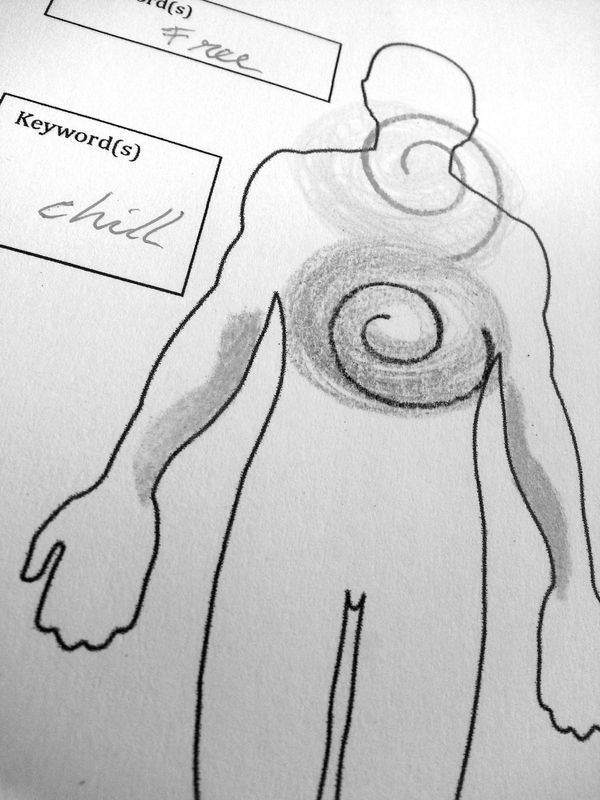 ord(s)
Free
Keyword(s)
chill